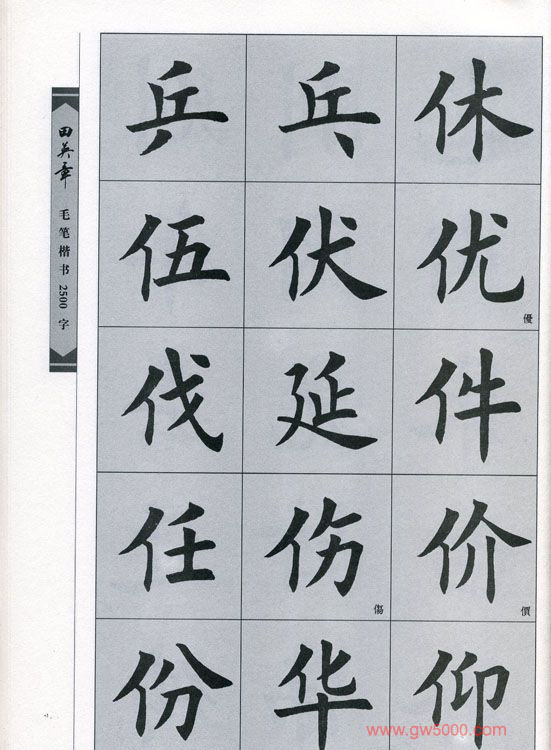 田英章 毛笔楷书2500字
乒 乓 休
伍 伏 优 優
伐 延 件
任 伤 傷 价 價
份 华 仰
www.gw5000.com